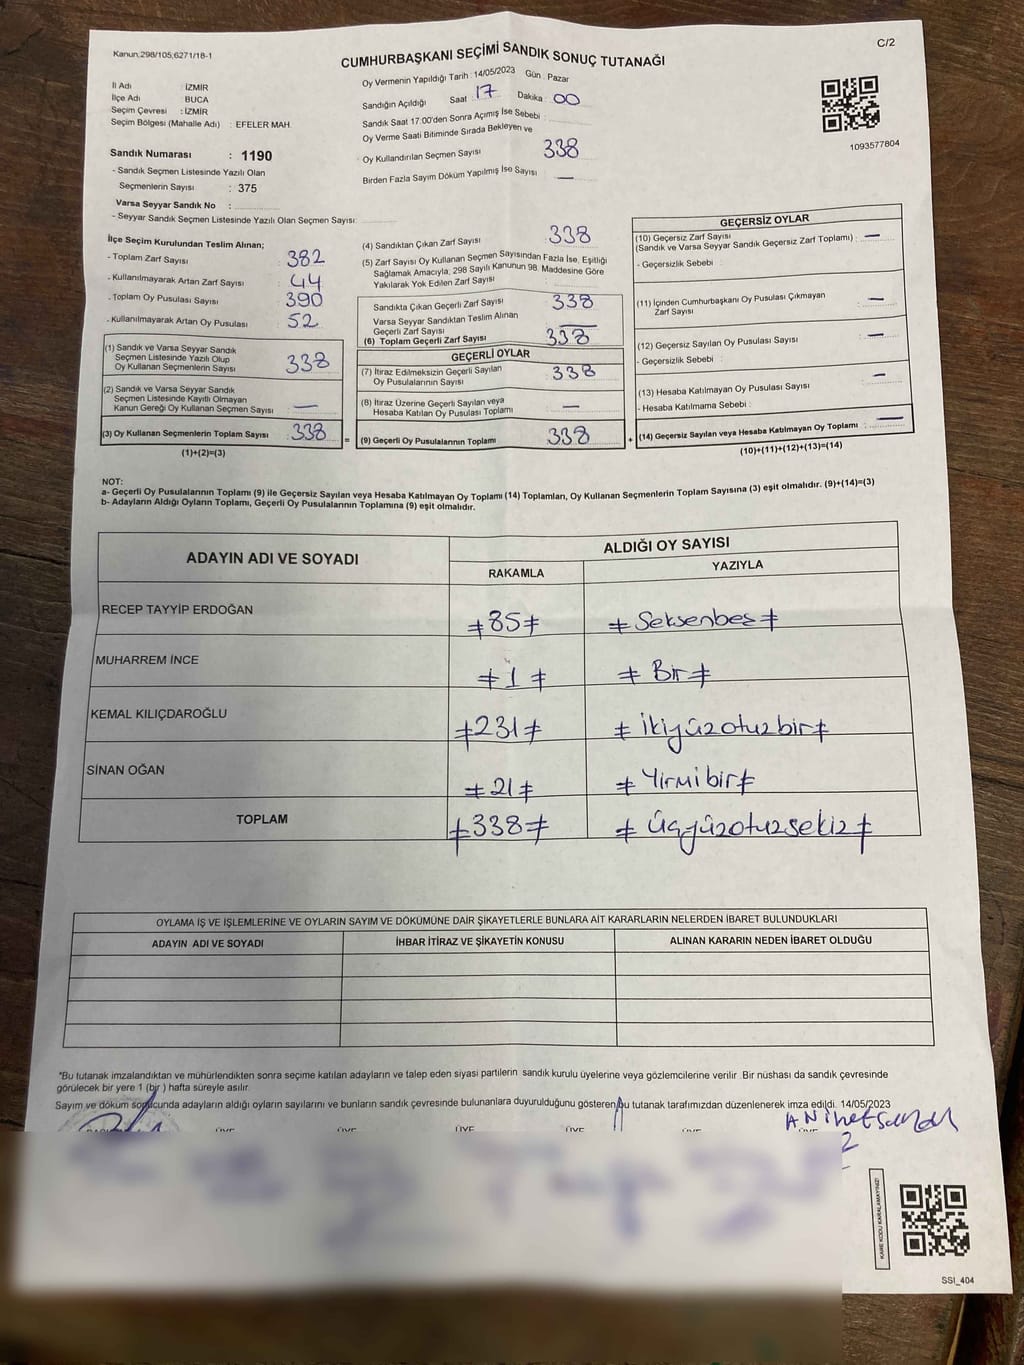 Kanun;298/105;6271/18-1
C/2
CUMHURBAŞKANI SEÇİMİ SANDIK SONUÇ TUTANAĞI
İl Adı : İZMİR
İlçe Adı : BUCA
Seçim Çevresi : İZMİR
Seçim Bölgesi (Mahalle Adı) : EFELER MAH.
Sandık Numarası : 1190
- Sandık Seçmen Listesinde Yazılı Olan
Seçmenlerin Sayısı : 375
Varsa Seyyar Sandık No :
- Seyyar Sandık Seçmen Listesinde Yazılı Olan Seçmen Sayısı:
Oy Vermenin Yapıldığı Tarih : 14/05/2023 Gün : Pazar
Sandığın Açıldığı Saat : 17 Dakika : 00
Sandık Saat 17:00'den Sonra Açmış İse Sebebi :
Oy Verme Saati Bitiminde Sırada Bekleyen ve
Oy Kullandırılan Seçmen Sayısı 338
Birden Fazla Sayım Döküm Yapılmış İse Sayısı —
1093577804
İlçe Seçim Kurulundan Teslim Alınan;
- Toplam Zarf Sayısı : 382
- Kullanılmayarak Artan Zarf Sayısı : 44
- Toplam Oy Pusulası Sayısı : 390
- Kullanılmayarak Artan Oy Pusulası : 52
(1) Sandık ve Varsa Seyyar Sandık
Seçmen Listesinde Yazılı Olup
Oy Kullanan Seçmenlerin Sayısı : 338
(2) Sandık ve Varsa Seyyar Sandık
Seçmen Listesinde Kayıtlı Olmayan
Kanun Gereği Oy Kullanan Seçmen Sayısı : —
(3) Oy Kullanan Seçmenlerin Toplam Sayısı : 338
(1)+(2)=(3)
=
(4) Sandıktan Çıkan Zarf Sayısı : 338
(5) Zarf Sayısı Oy Kullanan Seçmen Sayısından Fazla İse, Eşitliği
Sağlamak Amacıyla, 298 Sayılı Kanunun 98. Maddesine Göre
Yakılarak Yok Edilen Zarf Sayısı :
Sandıkta Çıkan Geçerli Zarf Sayısı : 338
Varsa Seyyar Sandıktan Teslim Alınan
Geçerli Zarf Sayısı : —
(6) Toplam Geçerli Zarf Sayısı : 338
GEÇERLİ OYLAR
(7) İtiraz Edilmeksizin Geçerli Sayılan
Oy Pusulalarının Sayısı : 338
(8) İtiraz Üzerine Geçerli Sayılan veya
Hesaba Katılan Oy Pusulası Toplamı : —
(9) Geçerli Oy Pusulalarının Toplamı : 338
+
GEÇERSİZ OYLAR
(10) Geçersiz Zarf Sayısı
(Sandık ve Varsa Seyyar Sandık Geçersiz Zarf Toplamı) : —
- Geçersizlik Sebebi :
(11) İçinden Cumhurbaşkanı Oy Pusulası Çıkmayan
Zarf Sayısı : —
(12) Geçersiz Sayılan Oy Pusulası Sayısı : —
- Geçersizlik Sebebi :
(13) Hesaba Katılmayan Oy Pusulası Sayısı : —
- Hesaba Katılmama Sebebi :
(14) Geçersiz Sayılan veya Hesaba Katılmayan Oy Toplamı : —
(10)+(11)+(12)+(13)=(14)
NOT:
a- Geçerli Oy Pusulalarının Toplamı (9) ile Geçersiz Sayılan veya Hesaba Katılmayan Oy Toplamı (14) Toplamları, Oy Kullanan Seçmenlerin Toplam Sayısına (3) eşit olmalıdır. (9)+(14)=(3)
b- Adayların Aldığı Oyların Toplamı, Geçerli Oy Pusulalarının Toplamına (9) eşit olmalıdır.
ADAYIN ADI VE SOYADI
ALDIĞI OY SAYISI
RAKAMLA YAZIYLA
RECEP TAYYİP ERDOĞAN ≠85≠ ≠ Seksenbeş ≠
MUHARREM İNCE ≠ 1 ≠ ≠ Bir ≠
KEMAL KILIÇDAROĞLU ≠231≠ ≠ ikiyüzotuzbir≠
SİNAN OĞAN ≠21≠ ≠ Yirmibir≠
TOPLAM ≠338≠ ≠ üçyüzotuzsekiz≠
OYLAMA İŞ VE İŞLEMLERİNE VE OYLARIN SAYIM VE DÖKÜMÜNE DAİR ŞİKAYETLERLE BUNLARA AİT KARARLARIN NELERDEN İBARET BULUNDUKLARI
ADAYIN ADI VE SOYADI İHBAR İTİRAZ VE ŞİKAYETİN KONUSU ALINAN KARARIN NEDEN İBARET OLDUĞU
*Bu tutanak imzalandıktan ve mühürlendikten sonra seçime katılan adayların ve talep eden siyasi partilerin sandık kurulu üyelerine veya gözlemcilerine verilir. Bir nüshası da sandık çevresinde
görülecek bir yere 1 (bir ) hafta süreyle asılır.
Sayım ve döküm sonucunda adayların aldığı oyların sayılarını ve bunların sandık çevresinde bulunanlara duyurulduğunu gösteren bu tutanak tarafımızdan düzenlenerek imza edildi. 14/05/2023
ÜYE ÜYE ÜYE ÜYE
KARE KODU KARALAMAYINIZ!
SSI_404